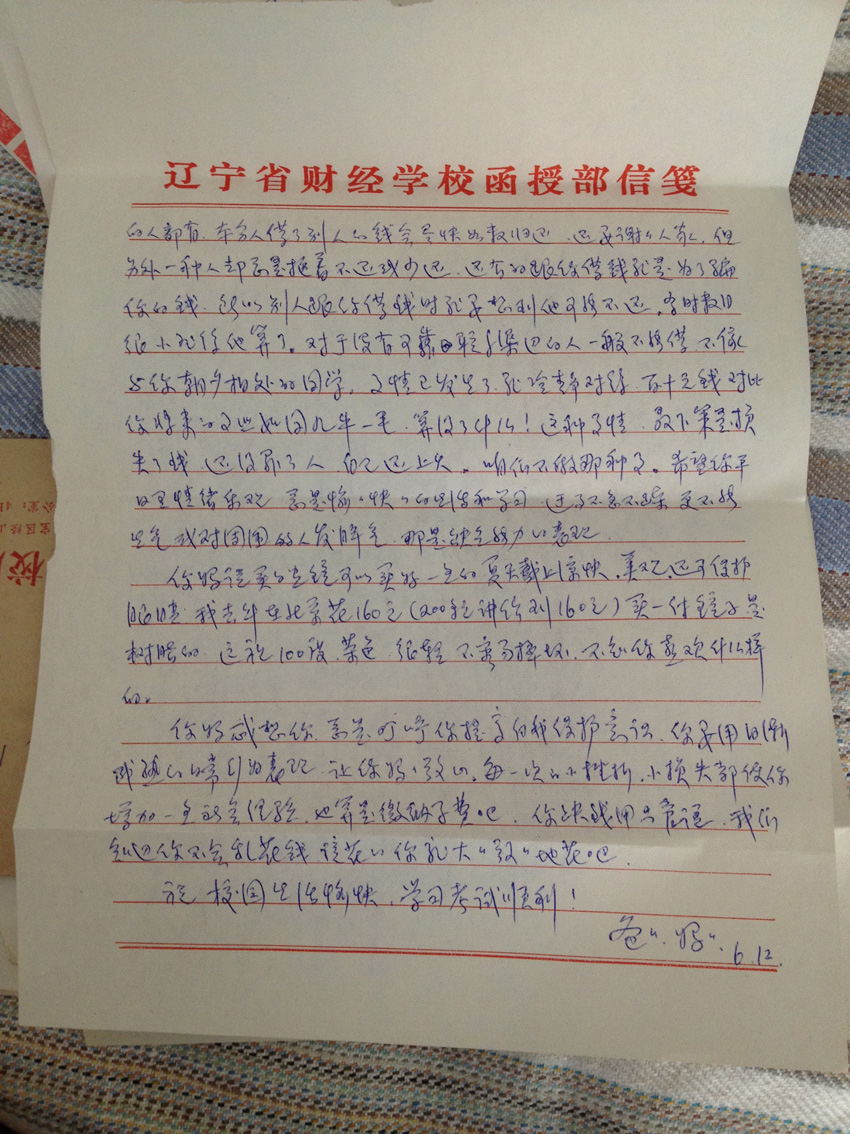 辽宁省财经学校函授部信笺
的人都有，本分人借了别人的钱会尽快如数归还，还要谢谢人家，但
另外一种人却总是拖着不还或少还，还有的跟你借钱就是为了骗
你的钱，所以别人跟你借钱时就要想到他可能不还，当时数目
很小就给他算了。对于没有可靠联系渠道的人一般不能借，不像
与你朝夕相处的同学，事情已发生了就冷静对待，百十元钱对比
你将来的事业如同九牛一毛，算得了什么！这种事情，最下策是损
失了钱，还得罪了人，自己还上火，咱们不做那种事。希望你平
日里情绪乐观，总是愉快的生活和学习，遇事不急不躁，更不能
生气或对周围的人发脾气，那是缺乏能力的表现。
你妈说买的光镜可以买好一点的，夏天戴上凉快，美观，还可保护
眼睛，我去年在北京花160元（200多元讲价到160元）买一付镜子是
树脂的，这就100度，茶色，很轻，不容易摔坏，不知你喜欢什么样
的。
你妈感想你，总是叮咛你提高自我保护意识，你要用日渐
成熟的言行为表现，让你妈放心，每一次的小挫折，小损失都使你
增加一点社会经验，也算是缴纳学费吧，你缺钱用只管说，我们
知道你不会乱花钱，该花的你就大“毅”地花吧。
祝 校园生活愉快，学习考试顺利！
爸“妈” 6.12.
校